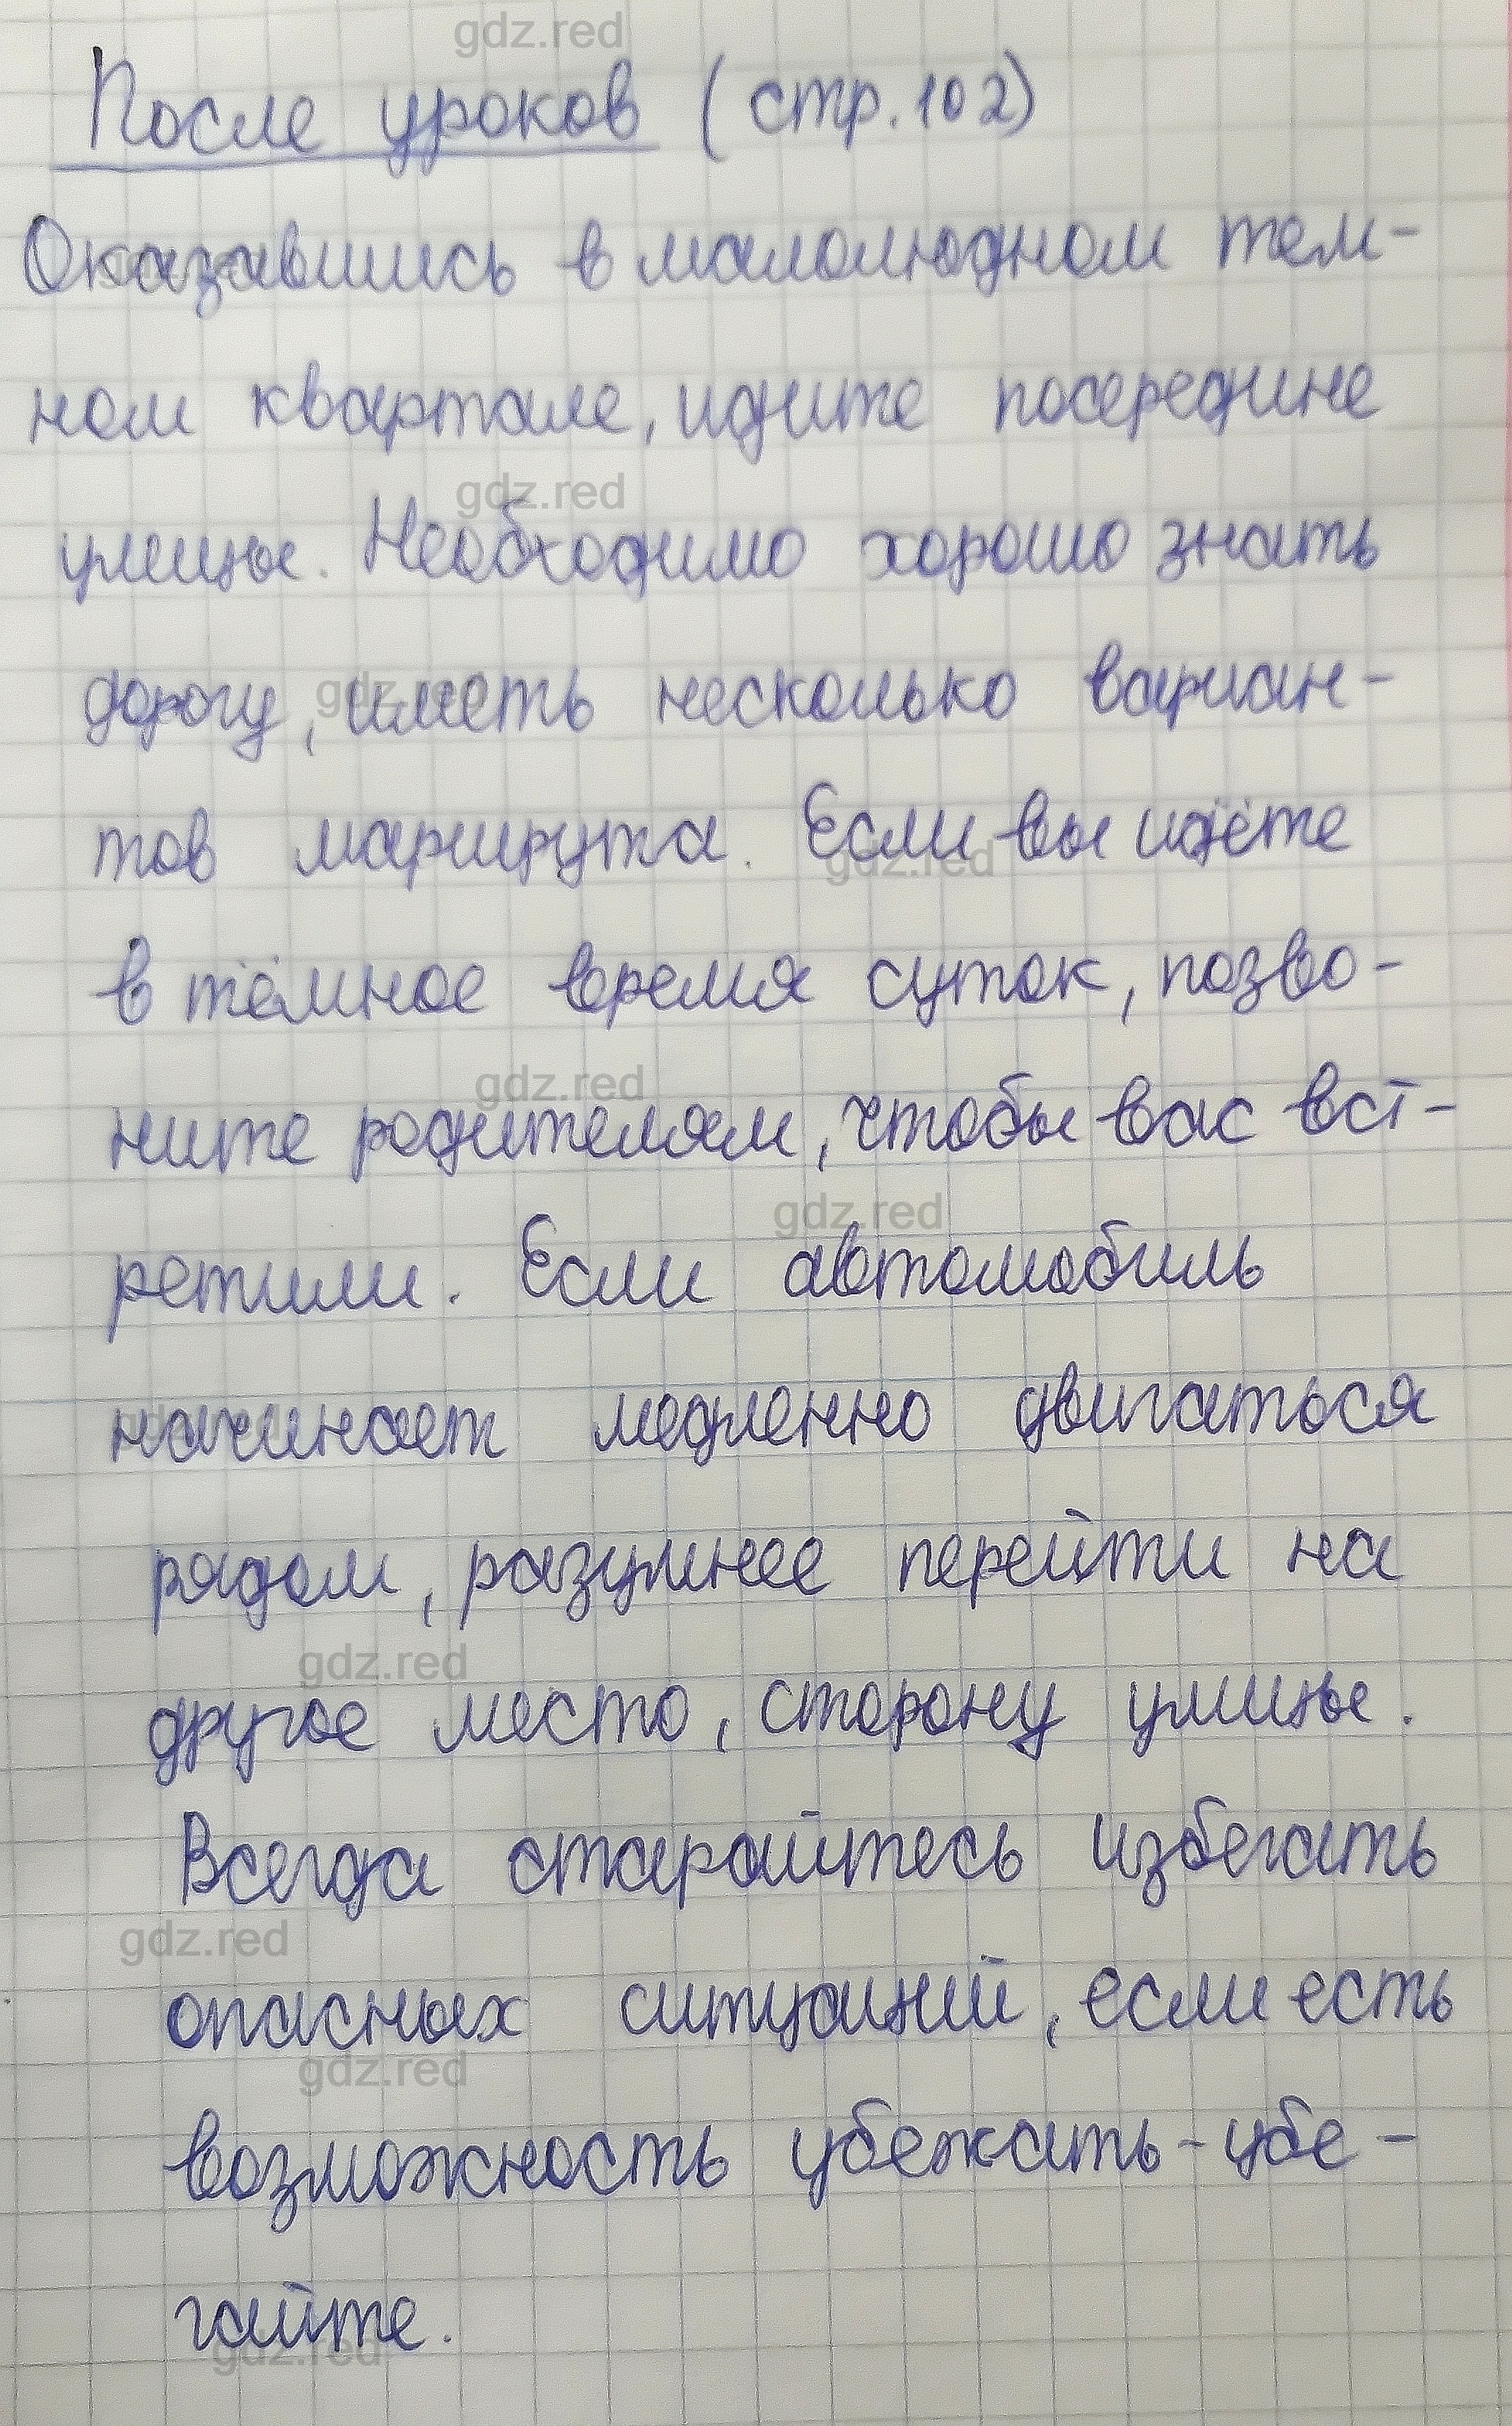 После уроков (стр. 102)
Оказавшись в малолюдном тем-
ном квартале, идите посередине
улицы. Необходимо хорошо знать
дорогу, иметь несколько вариан-
тов маршрута. Если вы идёте
в тёмное время суток, позво-
ните родителям, чтобы вас вст-
ретили. Если автомобиль
начинает медленно двигаться
рядом, разумнее перейти на
другое место, сторону улицы.
Всегда старайтесь избегать
опасных ситуаций, если есть
возможность убежать - убе-
гайте.
gdz.red
gdz.red
gdz.red
gdz.red
gdz.red
gdz.red
gdz.red
gdz.red
gdz.red
gdz.red
gdz.red
gdz.red